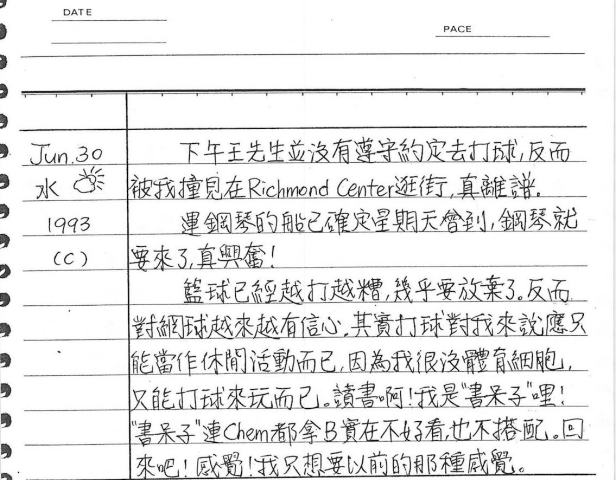 DATE
PACE
Jun.30 下午王先生並沒有遵守約定去打球,反而
水 被我撞見在Richmond Center逛街,真離譜.
1993 運鋼琴的船已確定星期天會到,鋼琴就
(C) 要來了,真興奮!
籃球已經越打越糟,幾乎要放棄了。反而
對網球越來越有信心.其實打球對我來說應只
能當作休閒活動而已,因為我很沒體育細胞,
只能打球來玩而已。讀書啊!我是"書呆子"哩!
"書呆子"連Chem都拿B實在不好看,也不搭配。回
來吧!感覺!我只想要以前的那種感覺。